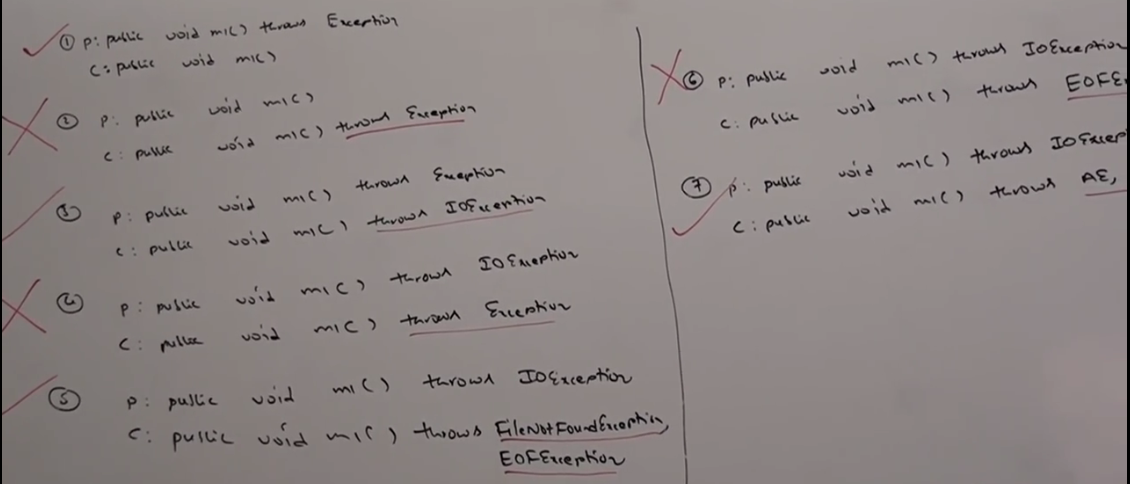 ① P: public void m1() throws Exception
C: public void m1()
② P: public void m1()
C: public void m1() throws Exception
③ P: public void m1() throws Exception
C: public void m1() throws IOException
④ P: public void m1() throws IOException
C: public void m1() throws Exception
⑤ P: public void m1() throws IOException
C: public void m1() throws FileNotFoundException,
EOFException
⑥ P: public void m1() throws IOException
C: public void m1() throws EOFE
⑦ P: public void m1() throws IOExcept
C: public void m1() throws AE,